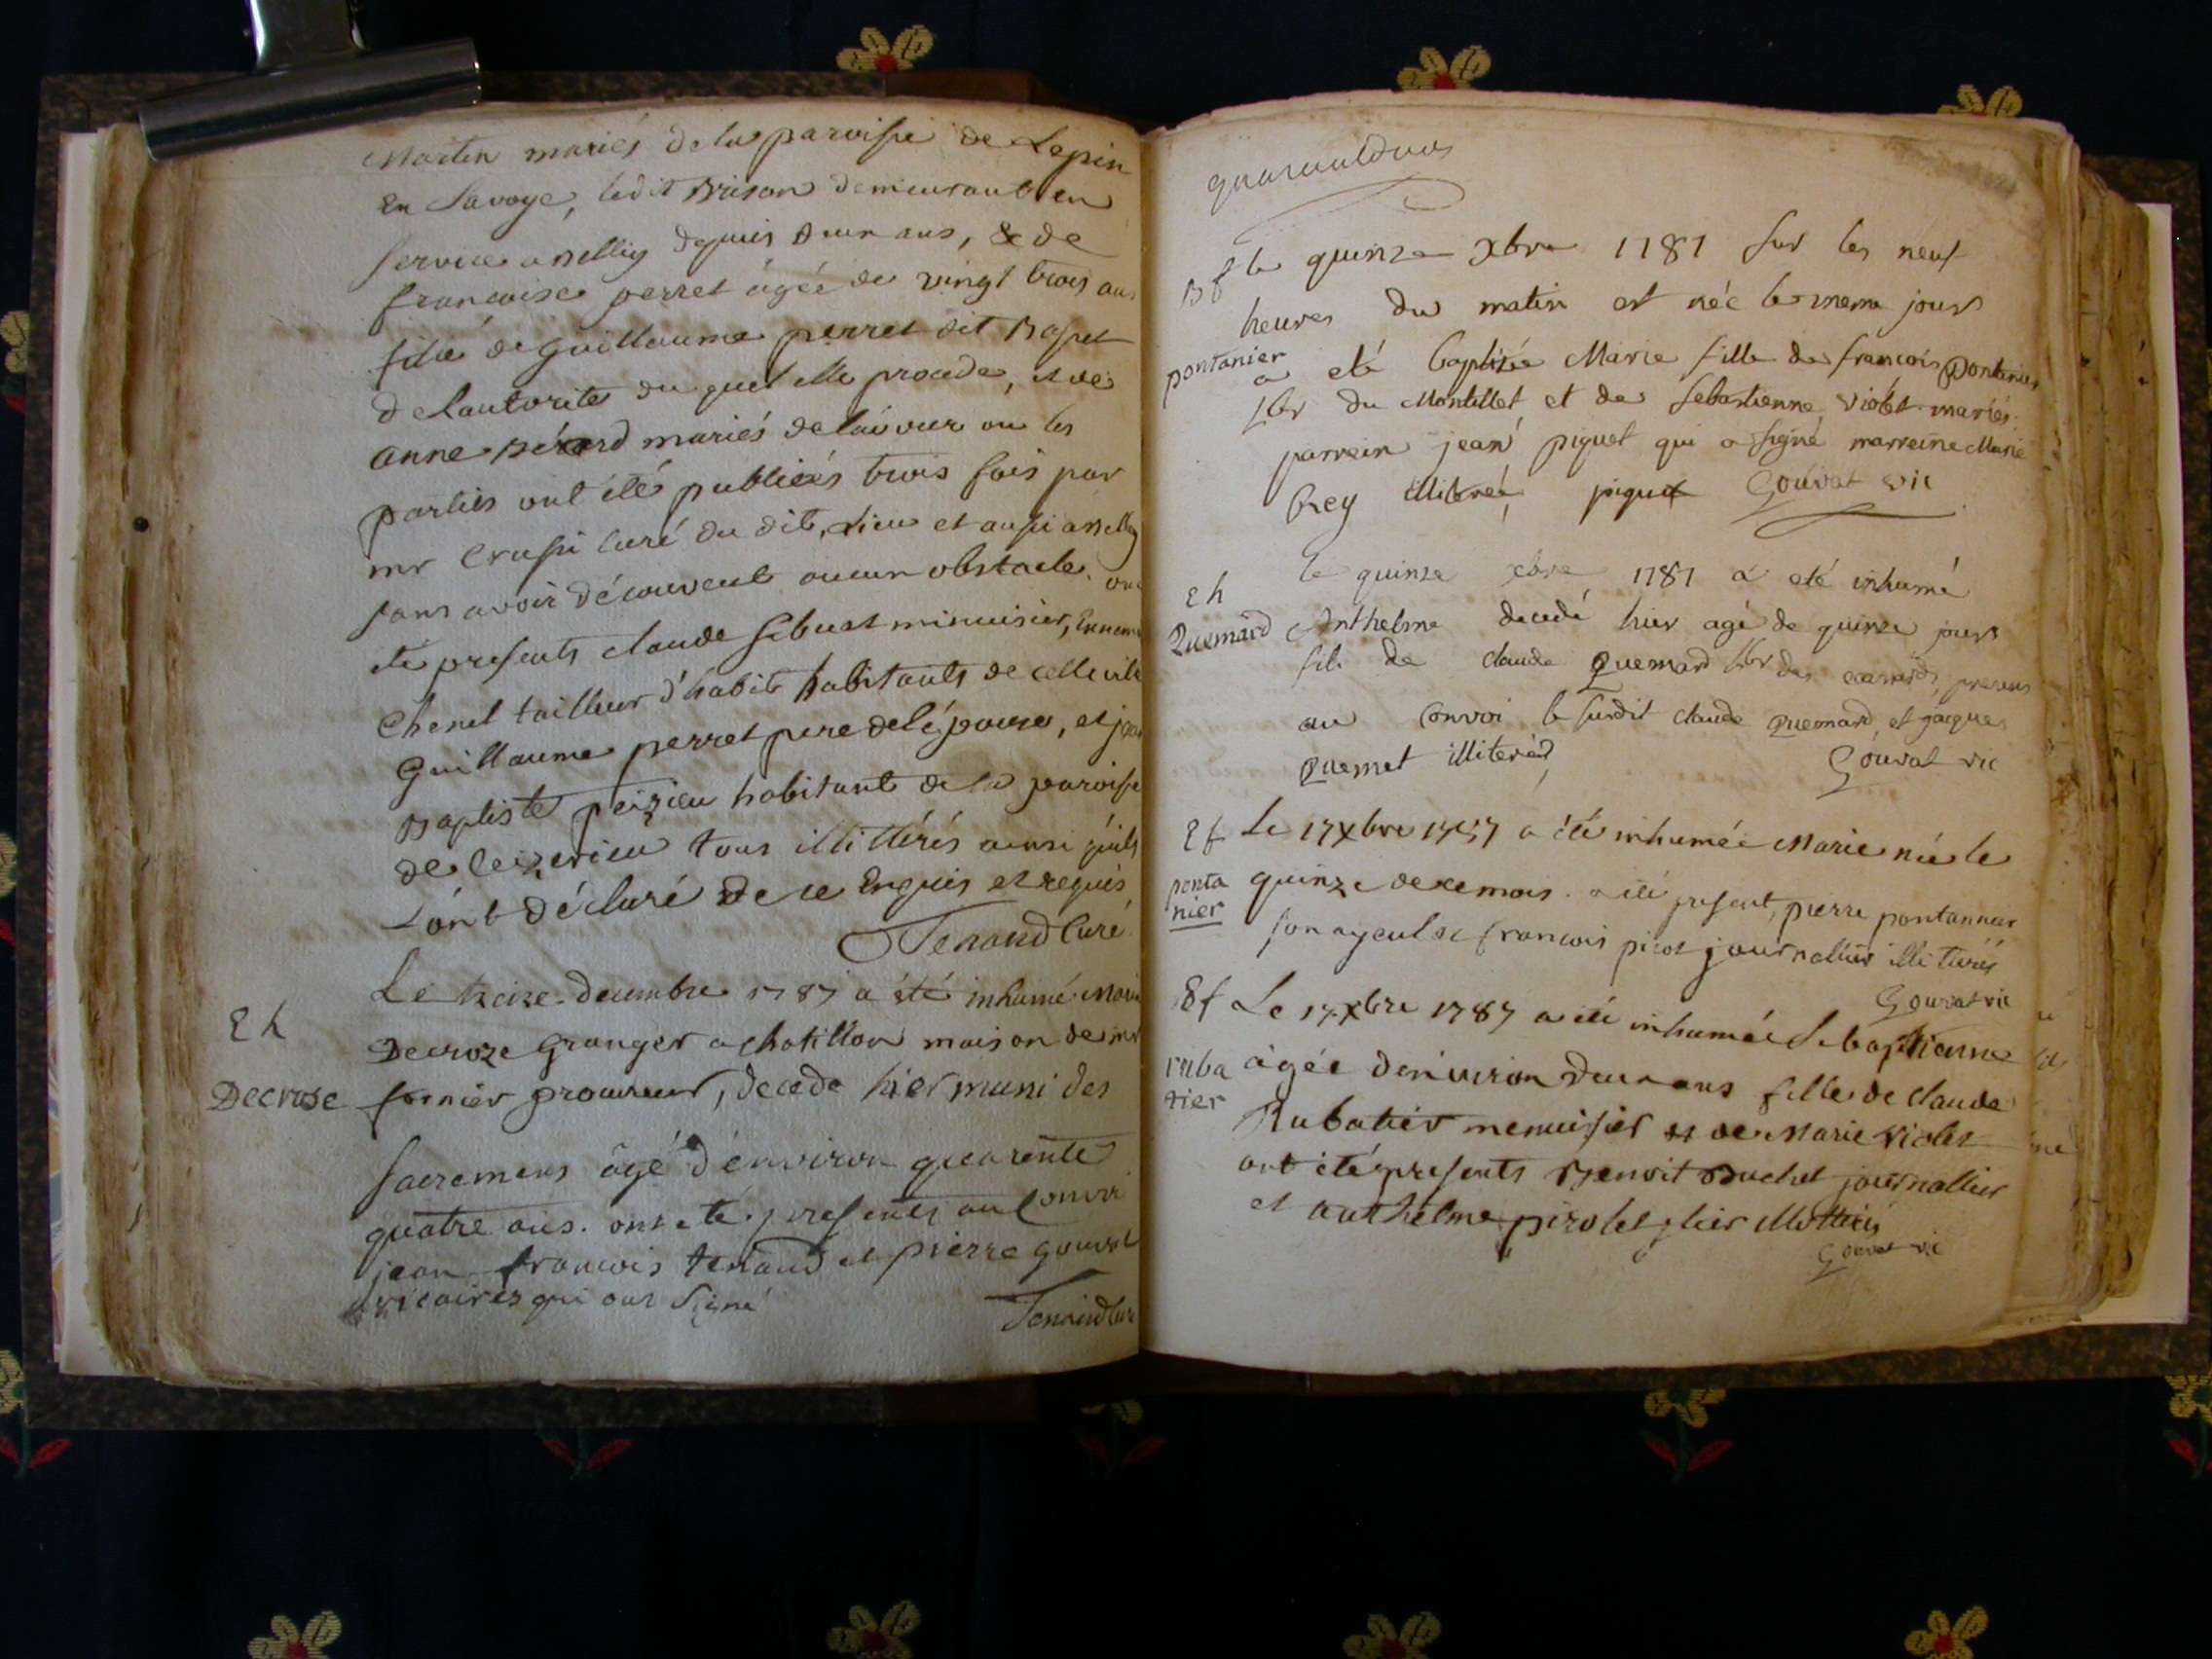 Martin mariés de la paroisse de Lepin
en Savoye, ledit Brison demeurant en
service a Belley depuis deux ans, & de
francoise perret âgée de vingt trois ans
fille de Guillaume perret dit
de lautorité du quel elle procede, et de
anne mariés de ou les
parties ont été publiées trois fois par
mr curé du dit lieu et aussi a Belley
sans avoir découvert aucun obstacle. ont
été presents claude menuisier,
Chenel tailleur d'habit habitants de cette ville
Guillaume perret pere de lépouse, et jean
Baptiste peizieu habitant de la paroisse
de ceizerieu tous illittérés ainsi qu'ils
l'ont déclaré de ce Enquis et requis
Tenand Curé
Le treize decembre 1787 a été inhumé
E h
Decroze Granger a chatillon maison de mr
Decroze
fornier procureur, decedé hier muni des
sacremens âgé d'environ quarente
quatre ans. ont été presents au Convoi
jean francois tenand et pierre gouvat
vicaires qui ont signé
Tenand Curé
quarantdeux
B f
le quinze Xbre 1787 sur les neuf
heures du matin est née le meme jour
pontanier
a eté baptisée Marie fille de francois pontanier
lbr du Montillet et de Sebastienne violet mariés.
parrein jean piquet qui a signé marreine Marie
Rey illiterée piquet Gouvat vic
E h
le quinze xbre 1787 a eté inhumé
Quemard
Anthelme decedé hier agé de quinze jours
fils de claude Quemard lbr des presens
au convoi le susdit claude Quemard et jacques
Quemet illiterés
Gouvat vic
E f
Le 17 Xbre 1787 a été inhumée Marie née le
ponta
nier
quinze de ce mois. a été present, pierre pontannier
son ayeul et francois picot journallier illiterés
Gouvat vic
E f
Le 17 Xbre 1787 a été inhumée Sebastienne
ruba
tier
âgée d'environ deux ans fille de claude
Rubatier menuisier et de Marie Violet
ont été presents Benoit Buchet journallier
et anthelme pirolet
Gouvat vic